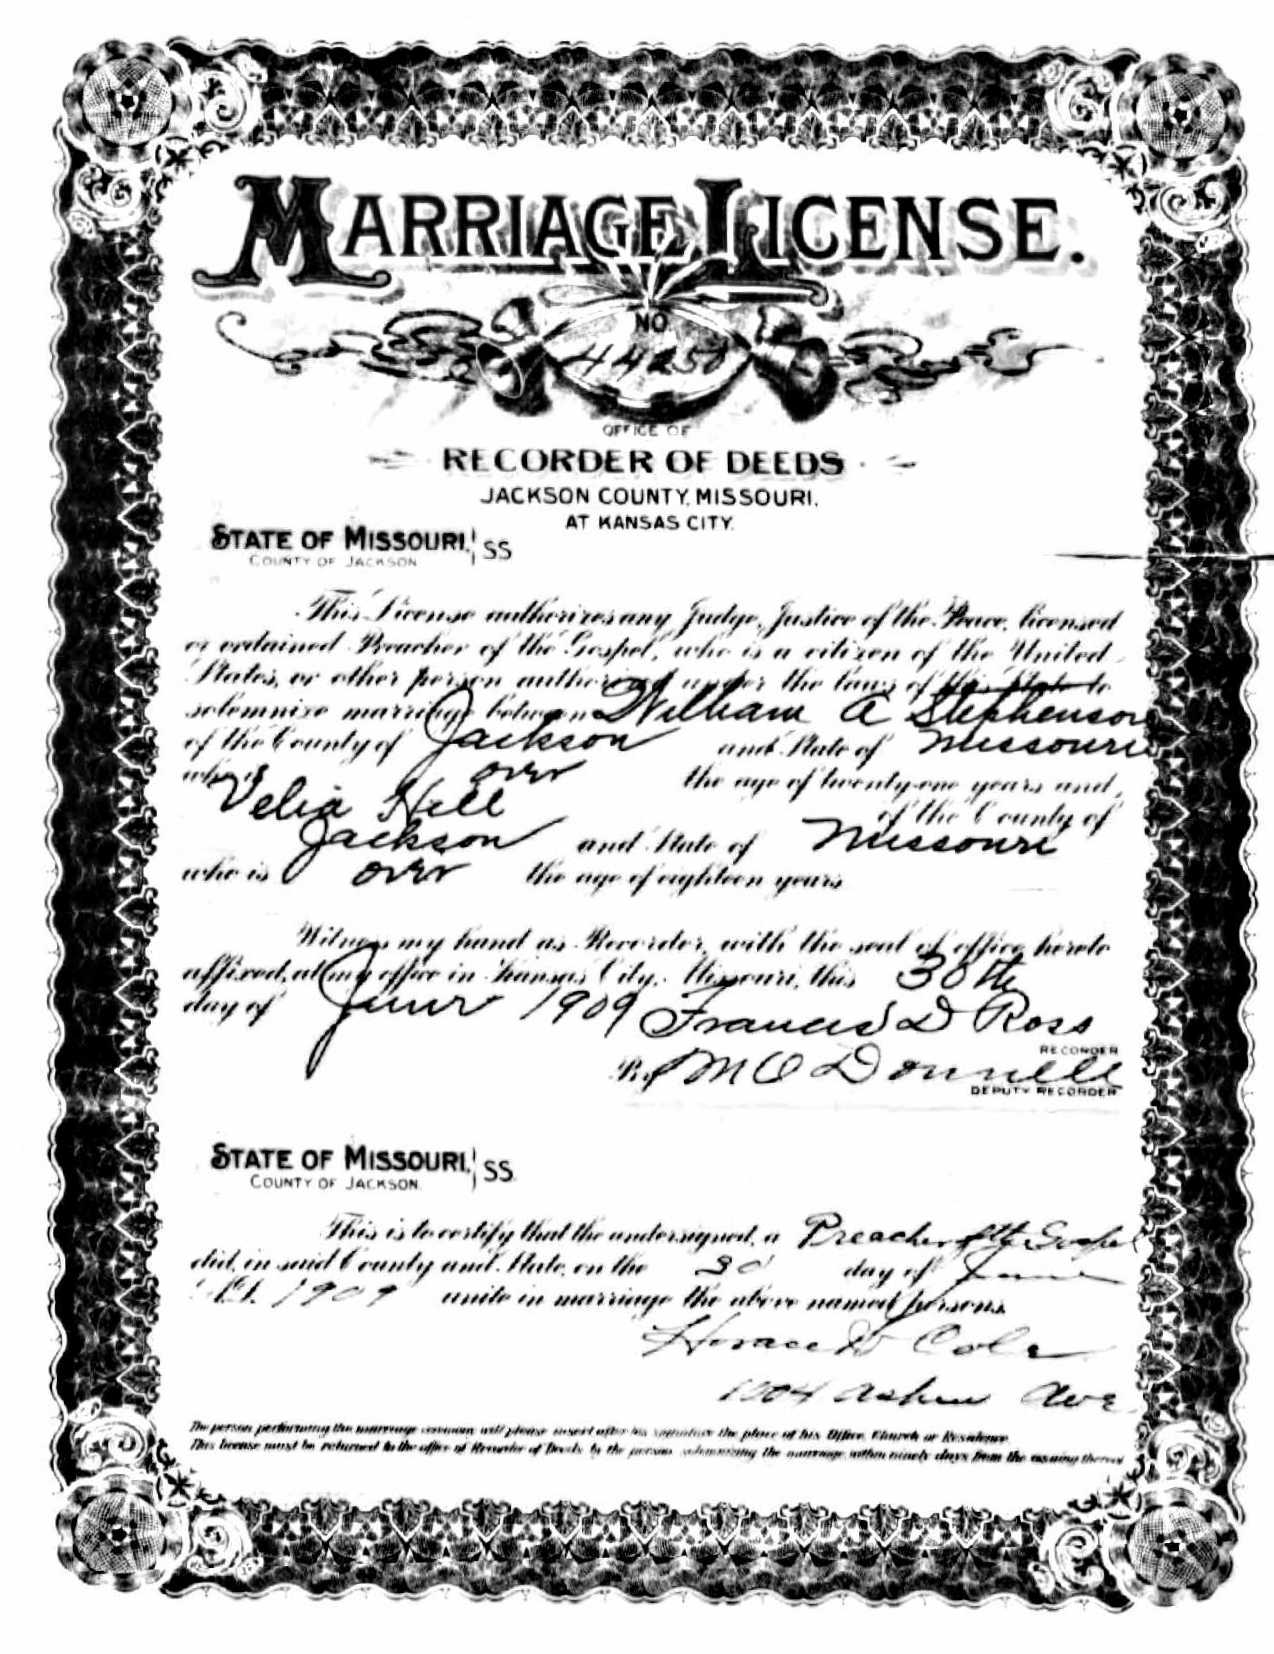 MARRIAGE LICENSE.
NO.
44250
OFFICE OF
RECORDER OF DEEDS
JACKSON COUNTY, MISSOURI,
AT KANSAS CITY.
STATE OF MISSOURI, } SS
COUNTY OF JACKSON
This License authorizes any Judge, Justice of the Peace, licensed
or ordained Preacher of the Gospel, who is a citizen of the United
States, or other person authorized under the laws of this State to
solemnize marriage between William A Stephenson
of the County of Jackson and State of Missouri
who is over the age of twenty-one years and
Velia Hill of the County of
Jackson and State of Missouri
who is over the age of eighteen years
Witness my hand as Recorder, with the seal of office hereto
affixed, at my office in Kansas City, Missouri, this 30th
day of June 1909 Francis D Ross
RECORDER
By M O Donnell
DEPUTY RECORDER
STATE OF MISSOURI, } SS
COUNTY OF JACKSON.
This is to certify that the undersigned, a Preacher of the Gospel
did, in said County and State, on the 30 day of June
A.D. 1909 unite in marriage the above named persons.
Horace D Cole
1004 Ave
The person performing the marriage ceremony will please insert after his signature the place of his Office, Church or Residence.
This license must be returned to the office of Recorder of Deeds by the person solemnizing the marriage within ninety days from the issuing thereof